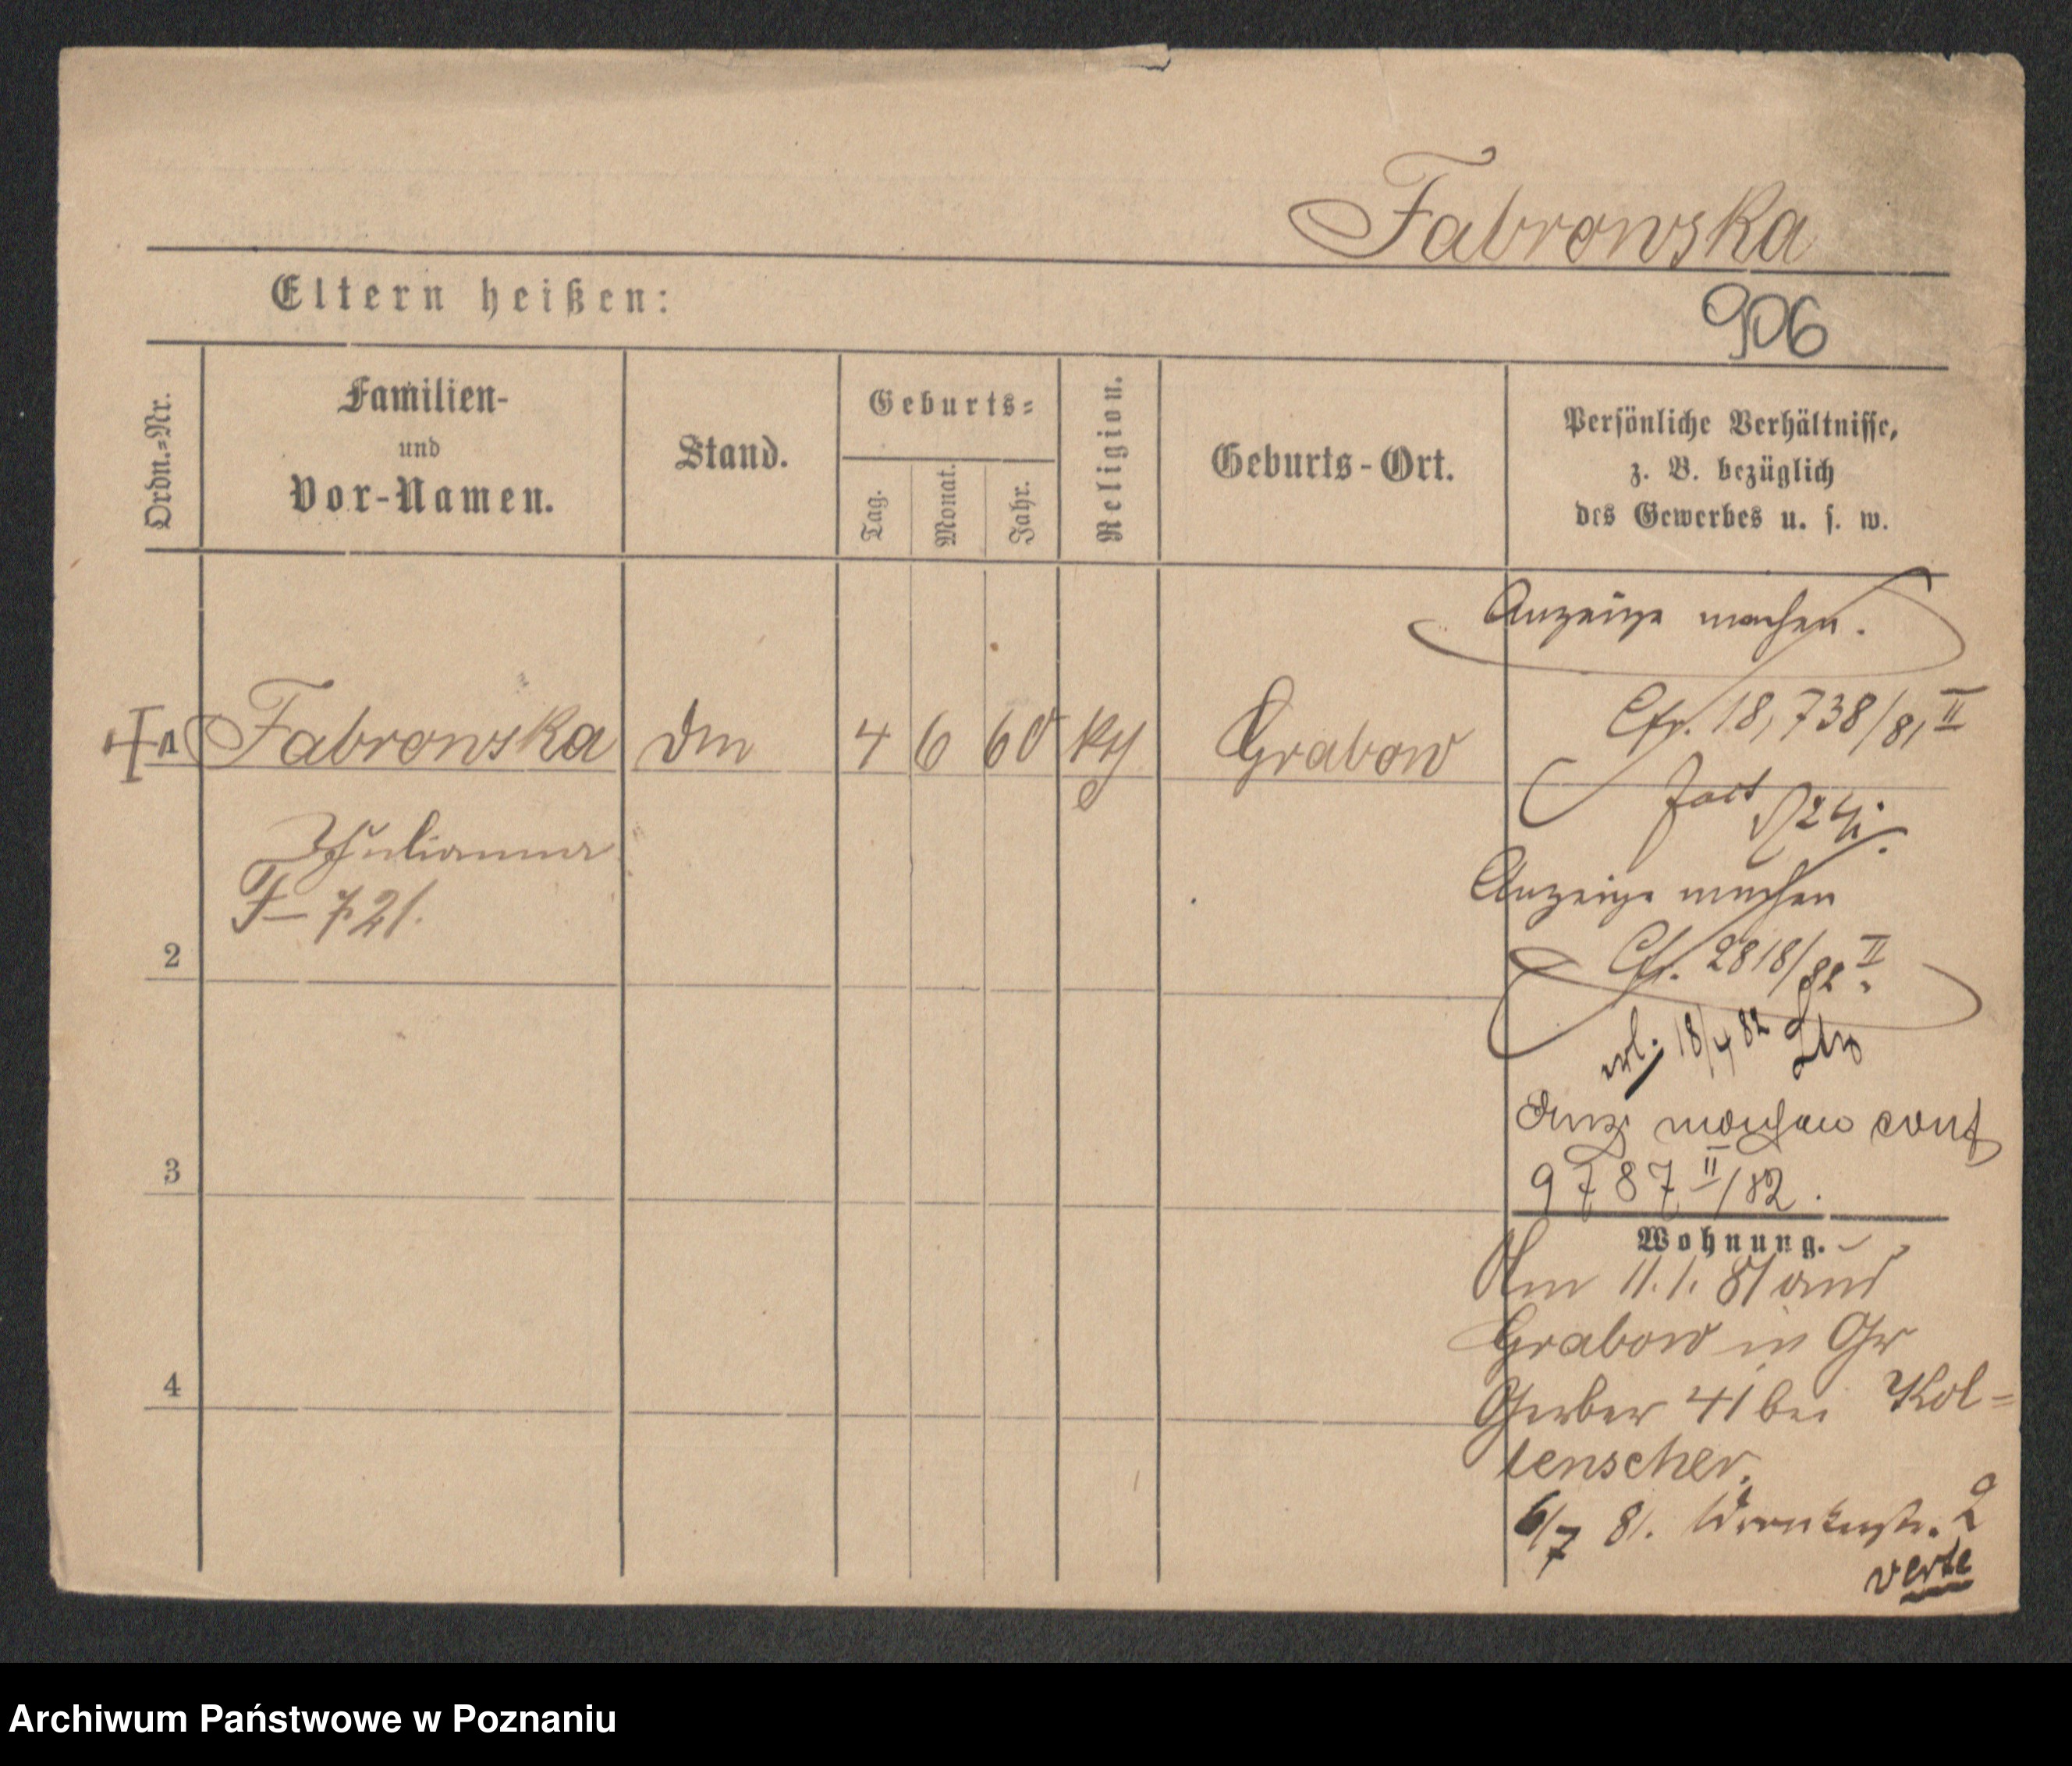 Fabrowska
Eltern heißen:
906
Ordn.=Nr.
Familien-
und
Vor-Namen.
Stand.
Geburts=
Tag.
Monat.
Jahr.
Religion.
Geburts-Ort.
Persönliche Verhältnisse,
z. B. bezüglich
des Gewerbes u. s. w.
Anzeige machen.
Fabrowska 4 6 60 Grabow
Cfr. 18,738/81 II
Julianna
F-721.
Anzeige machen
Cfr. 2818/82 II
2
erl. 18/4 82
Anz. machen conf
3
9787 II/82.
Wohnung.
Am 11.1.81 aus
Grabow in Gr
4
Gerber 41 bei Kol=
lenscher.
6/7 81. Wronkerstr. 2
verte
Archiwum Państwowe w Poznaniu